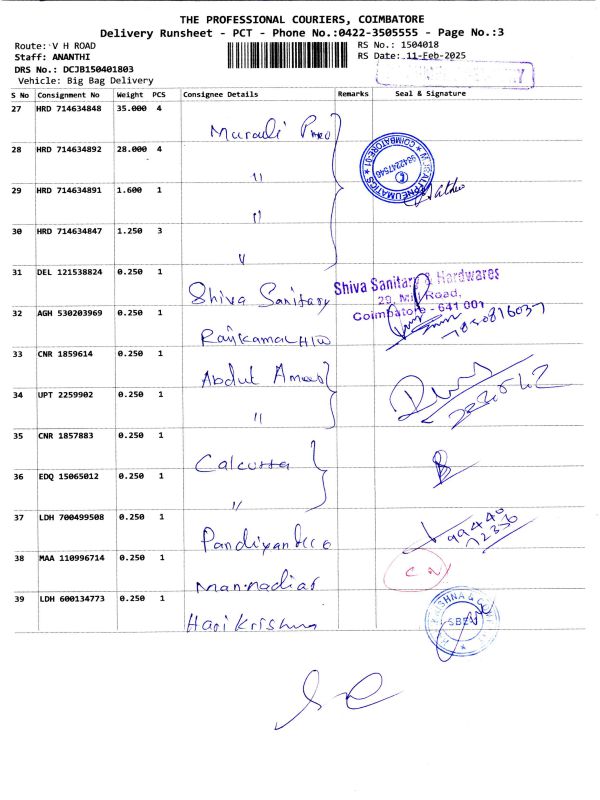 THE PROFESSIONAL COURIERS, COIMBATORE
Delivery Runsheet - PCT - Phone No.:0422-3505555 - Page No.:3
Route: V H ROAD
RS No.: 1504018
Staff: ANANTHI
RS Date: 11-Feb-2025
DRS No.: DCJB150401803
Vehicle: Big Bag Delivery
S No Consignment No Weight PCS Consignee Details Remarks Seal & Signature
27 HRD 714634848 35.000 4 Murali
28 HRD 714634892 28.000 4 "
29 HRD 714634891 1.600 1 "
30 HRD 714634847 1.250 3 "
31 DEL 121538824 0.250 1 Shiva Sanitary
Shiva Sanitary & Hardwares
29, Mill Road,
Coimbatore - 641 001
32 AGH 530203969 0.250 1 Rajkamal H/W
7850816037
33 CNR 1859614 0.250 1 Abdul
34 UPT 2259902 0.250 1 "
35 CNR 1857883 0.250 1 Calcutta
36 EDQ 15065012 0.250 1 "
37 LDH 700499508 0.250 1
99440
72336
38 MAA 110996714 0.250 1 Mannadiar
39 LDH 600134773 0.250 1 Hari Krishna